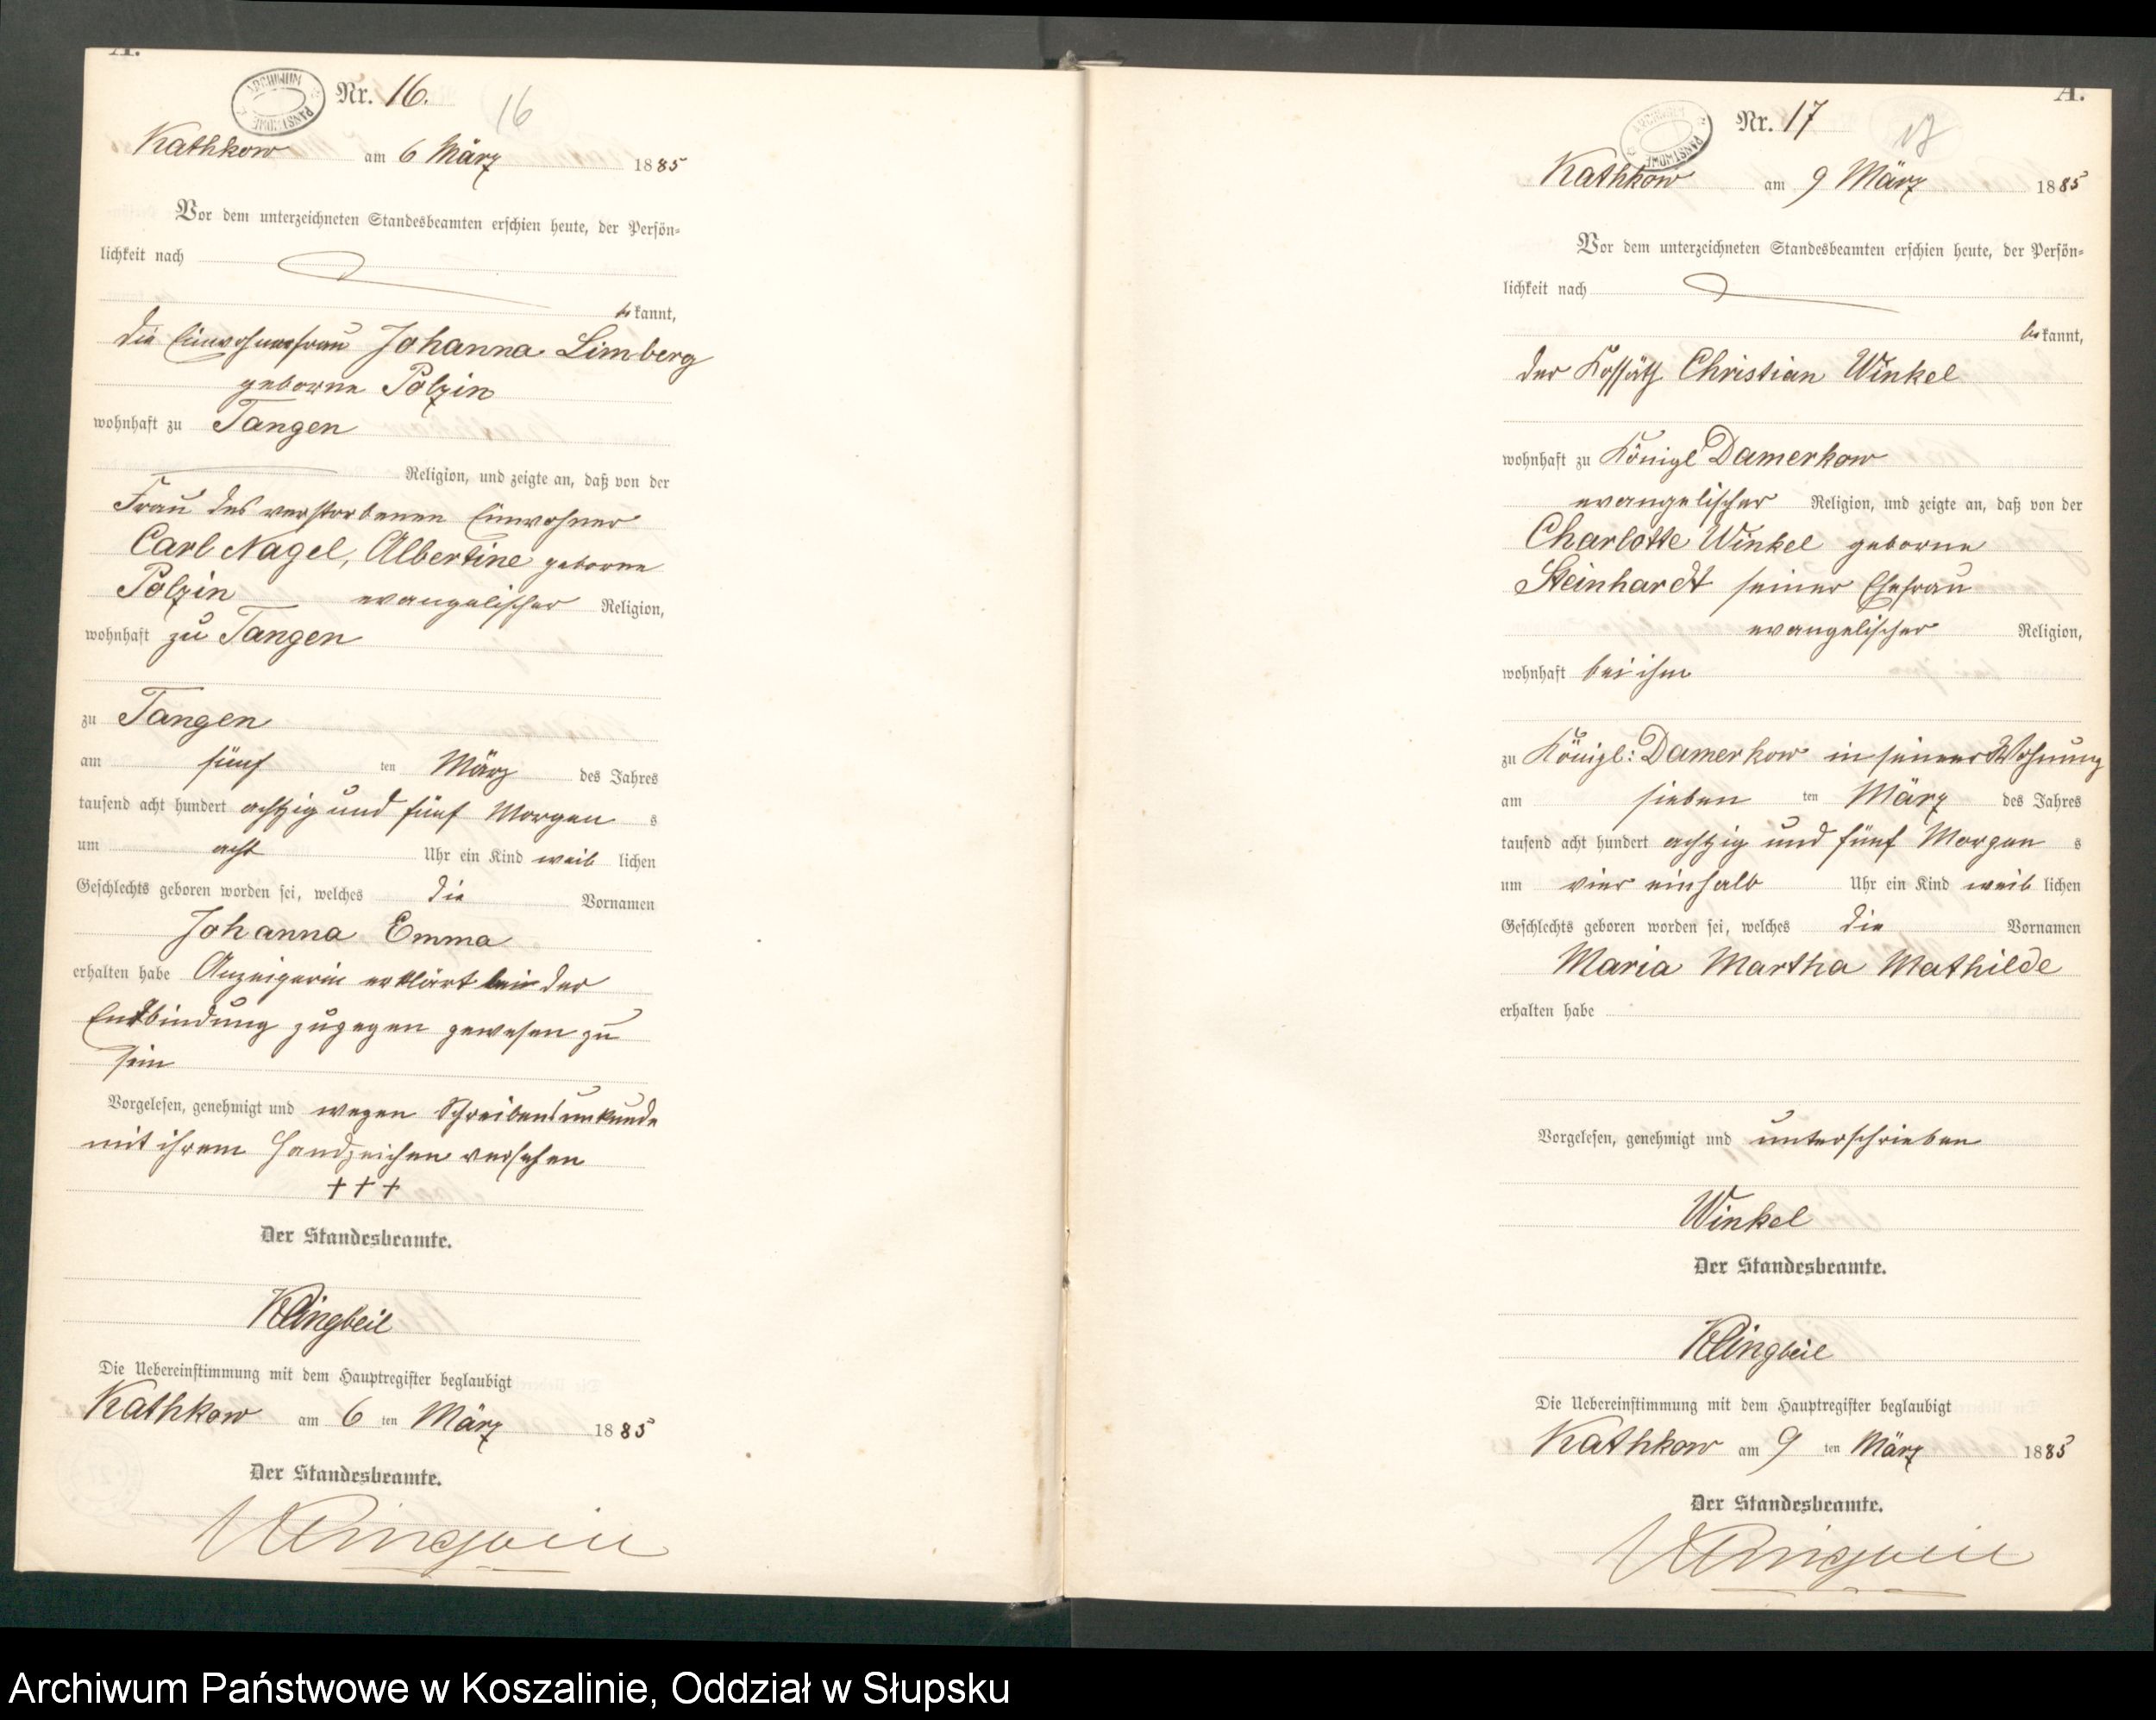 A.
ARCHIWUM PAŃSTWOWE
Nr. 16.
16
Kathkow am 6 März 1885
Vor dem unterzeichneten Standesbeamten erschien heute, der Persön-
lichkeit nach
bekannt,
die Einwohnerfrau Johanna Limberg
geborne Polzin
wohnhaft zu Tangen
Religion, und zeigte an, daß von der
Frau des verstorbenen Einwohner
Carl Nagel, Albertine geborne
Polzin evangelischer Religion,
wohnhaft zu Tangen
zu Tangen
am fünf ten März des Jahres
tausend acht hundert achtzig und fünf Morgens
um acht Uhr ein Kind weiblichen
Geschlechts geboren worden sei, welches die Vornamen
Johanna Emma
erhalten habe Anzeigerin erklärt bei der
Entbindung zugegen gewesen zu
sein
Vorgelesen, genehmigt und wegen Schreibensunkunde
mit ihrem Handzeichen versehen
+++
Der Standesbeamte.
Klingbeil
Die Uebereinstimmung mit dem Hauptregister beglaubigt
Kathkow am 6 ten März 1885
Der Standesbeamte.
Klingbeil
A.
ARCHIWUM PAŃSTWOWE
Nr. 17
17
Kathkow am 9 März 1885
Vor dem unterzeichneten Standesbeamten erschien heute, der Persön-
lichkeit nach
bekannt,
der Kossäth Christian Winkel
wohnhaft zu Königl Damerkow
evangelischer Religion, und zeigte an, daß von der
Charlotte Winkel geborne
Steinhardt seiner Ehefrau
evangelischer Religion,
wohnhaft bei ihm
zu Königl: Damerkow in seiner Wohnung
am sieben ten März des Jahres
tausend acht hundert achtzig und fünf Morgens
um vier einhalb Uhr ein Kind weiblichen
Geschlechts geboren worden sei, welches die Vornamen
Maria Martha Mathilde
erhalten habe
Vorgelesen, genehmigt und unterschrieben
Winkel
Der Standesbeamte.
Klingbeil
Die Uebereinstimmung mit dem Hauptregister beglaubigt
Kathkow am 9 ten März 1885
Der Standesbeamte.
Klingbeil
Archiwum Państwowe w Koszalinie, Oddział w Słupsku